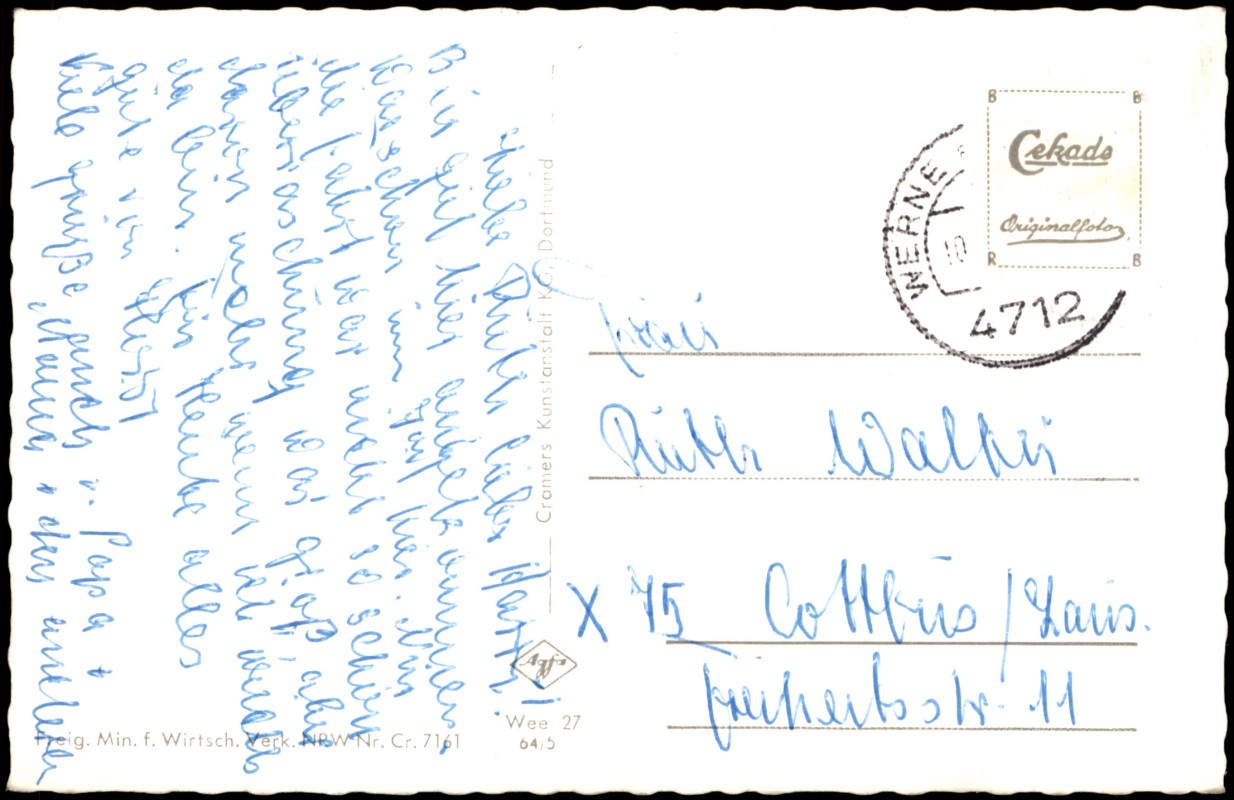 Liebe Ruth, lieber Hartm.!
Bin gut hier angekommen.
Waschen im gut hier. Nur
die Fahrt war nicht so schön
Überraschung war groß, aber
davon mehr wenn ich wieder
da bin. Für Heute alles
gute von
viele Grüße auch v. Papa +
Mama + den andern
Cramers Kunstanstalt KG, Dortmund
Agfa
Wee 27
64/5
Freig. Min. f. Wirtsch. Verk. NRW Nr. Cr. 7161
WERNE
10
4712
B B
Cekade
Originalfoto
R B
Frau
Ruth Walter
X 75 Cottbus / Laus.
Freiheitsstr. 11